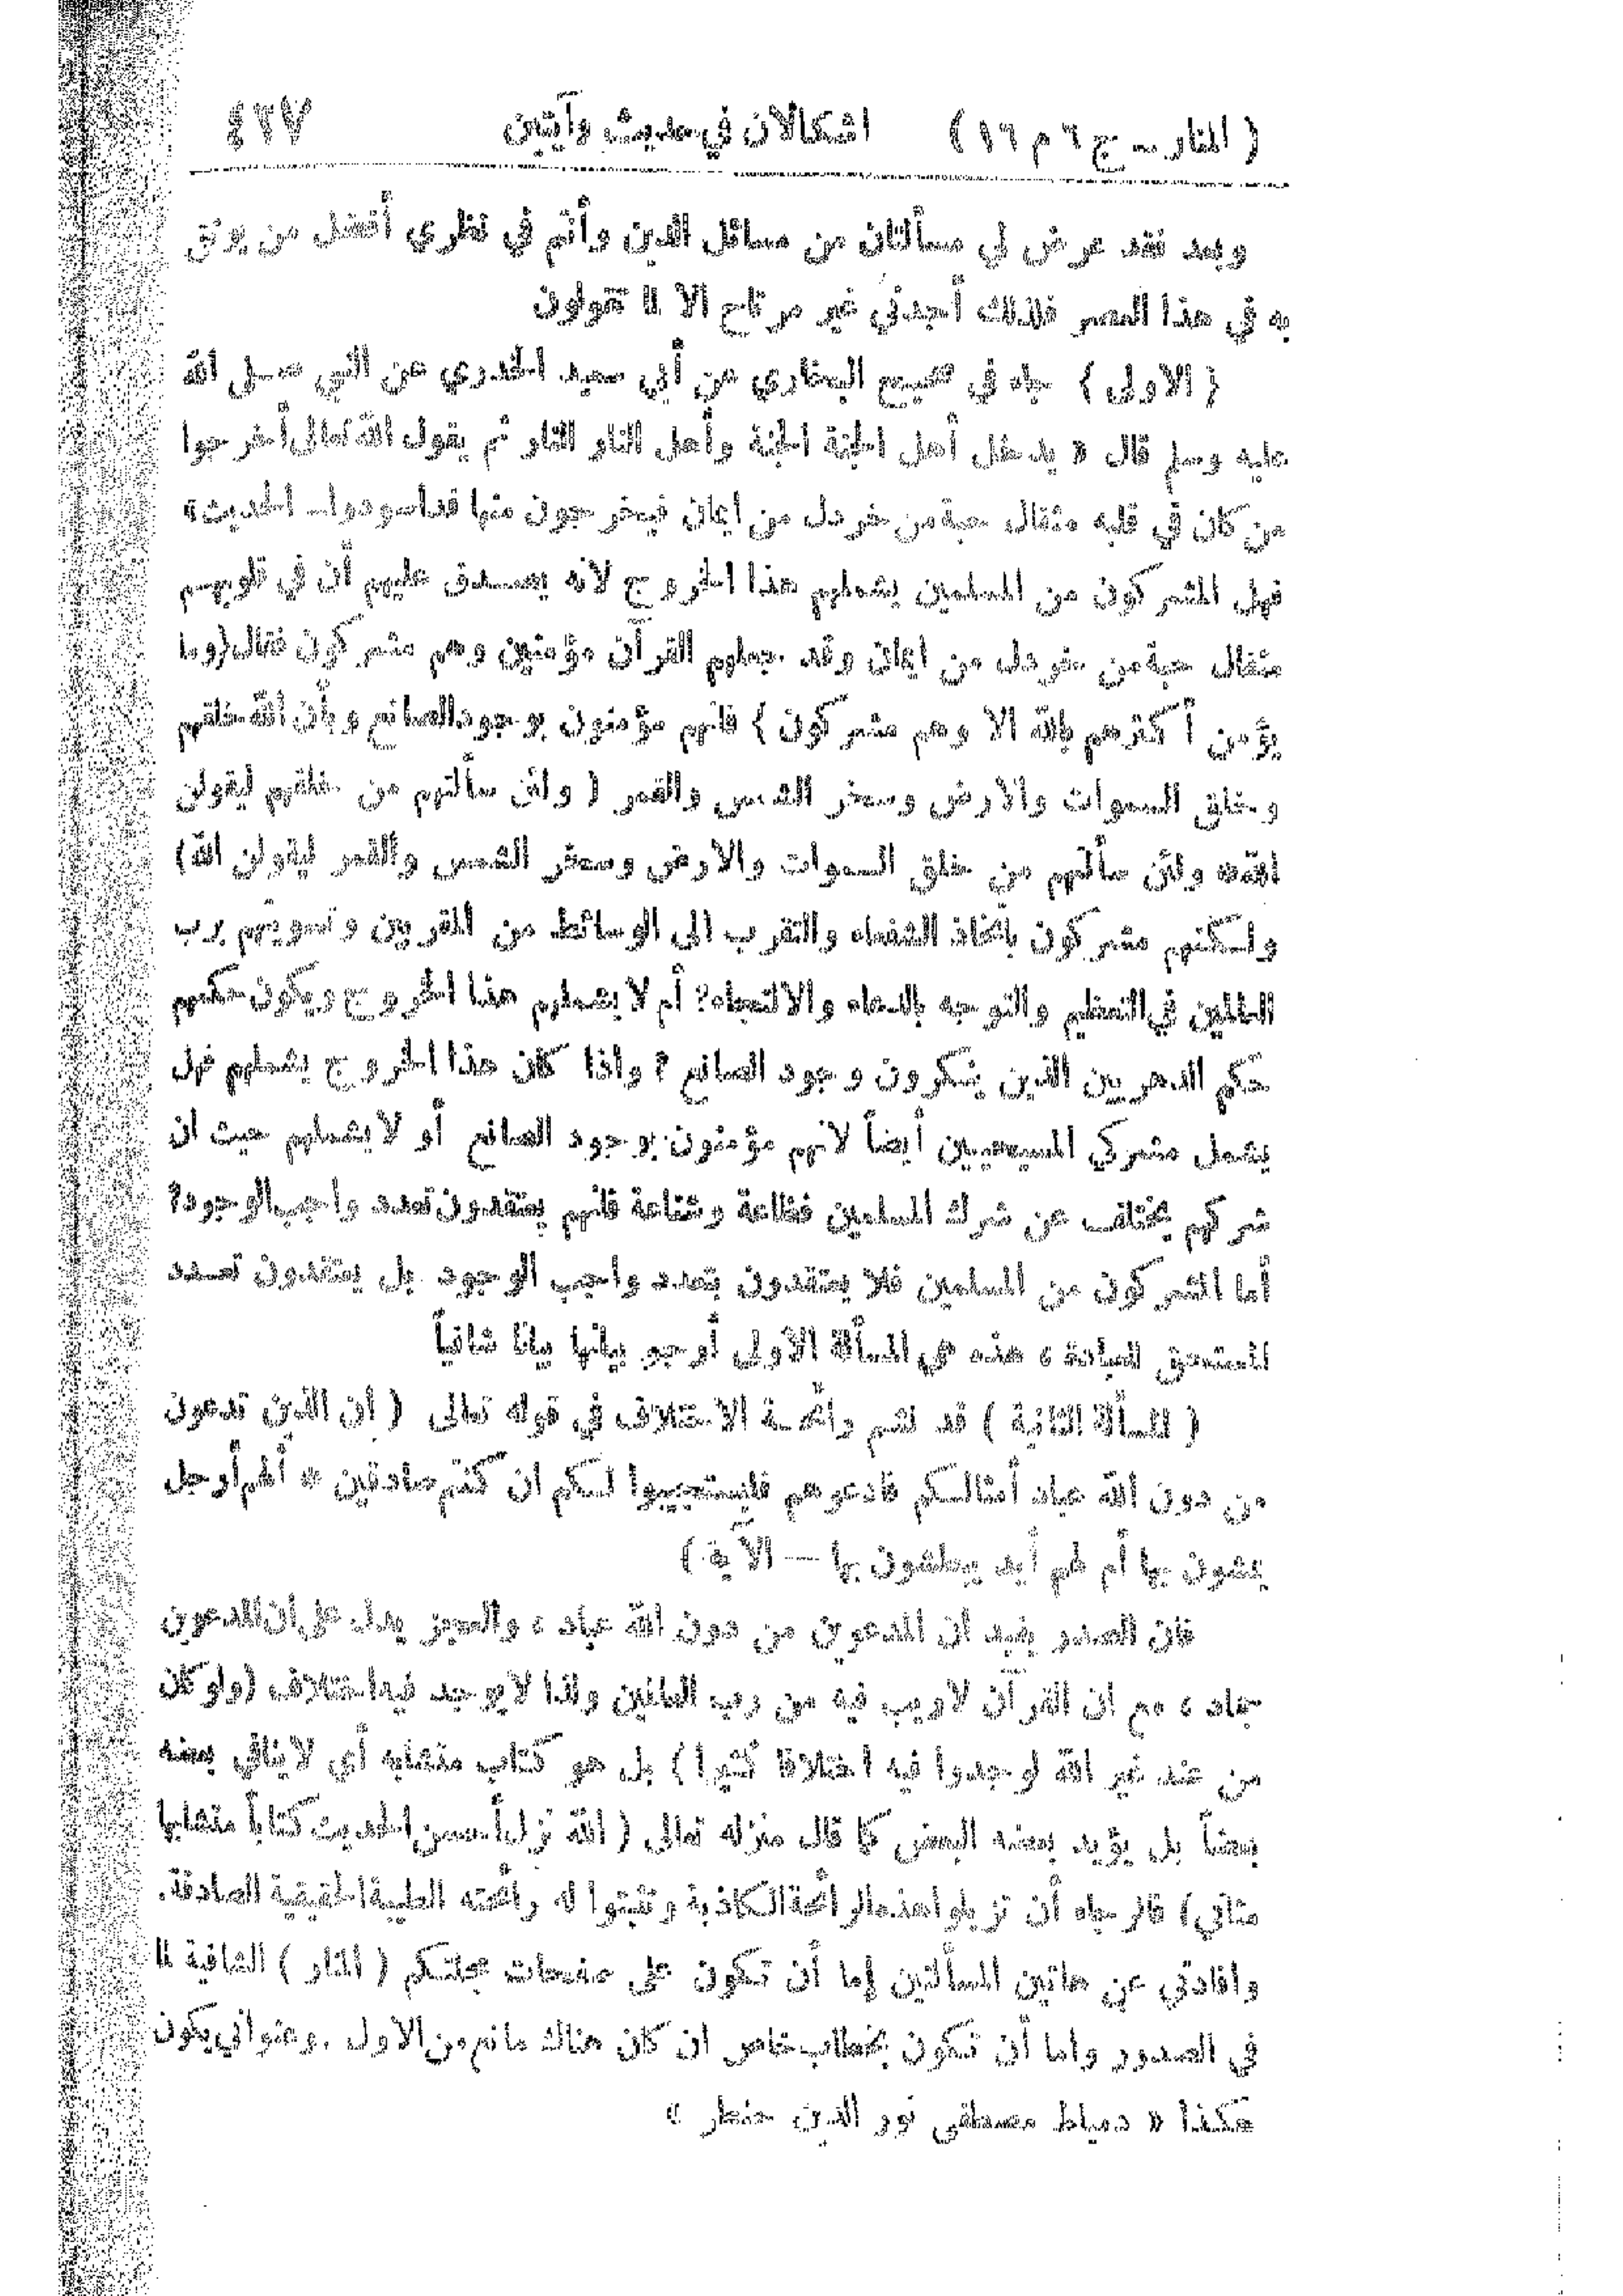 ( المنار – ج ٦ م ١٦ ) اشكالان في حديث وآيتين ٤٢٧
وبعد فقد عرض لي مسألتان من مسائل الدين وأنتم في نظري أفضل من يوثق
به في هذا العصر فلذلك أجدني غير مرتاح الا لما تقولون
( الاولى ) جاء في صحيح البخاري عن أبي سعيد الخدري عن النبي صلى الله
عليه وسلم قال « يدخل أهل الجنة الجنة وأهل النار النار ثم يقول الله تعالى أخرجوا
من كان في قلبه مثقال حبة من خردل من ايمان فيخرجون منها قد اسودوا – الحديث»
فهل المشركون من المسلمين يشملهم هذا الخروج لانه يصدق عليهم أن في قلوبهم
مثقال حبة من خردل من ايمان وقد جعلهم القرآن مؤمنين وهم مشركون فقال (وما
يؤمن أكثرهم بالله الا وهم مشركون ) فانهم مؤمنون بوجود الصانع وبأن الله خلقهم
وخلق السموات والارض وسخر الشمس والقمر ( ولئن سألتهم من خلقهم ليقولن
الله* ولئن سألتهم من خلق السموات والارض وسخر الشمس والقمر ليقولن الله)
ولكنهم مشركون باتخاذ الشفعاء والتقرب الى الوسائط من المقربين وتسويتهم برب
العالمين في التعظيم والتوجه بالدعاء والالتجاء؟ أم لا يشملهم هذا الخروج ويكون حكمهم
حكم الدهريين الذين ينكرون وجود الصانع ؟ واذا كان هذا الخروج يشملهم فهل
يشمل مشركي المسيحيين أيضاً لانهم مؤمنون بوجود الصانع أو لا يشملهم حيث ان
شركهم يختلف عن شرك المسلمين فظاعة وشناعة فانهم يعتقدون تعدد واجب الوجود؟
أما المشركون من المسلمين فلا يعتقدون بتعدد واجب الوجود بل يعتقدون تعدد
المستحق للعبادة ، هذه هي المسألة الاولى أرجو بيانها بيانا شافياً
( المسألة الثانية ) قد نشم رائحة الاختلاف في قوله تعالى ( ان الذين تدعون
من دون الله عباد أمثالكم فادعوهم فليستجيبوا لكم ان كنتم صادقين * ألهم أرجل
يمشون بها أم لهم أيد يبطشون بها — الآية )
فان الصدر يفيد ان المدعوين من دون الله عباد ، والعجز يدل على أن المدعوين
جماد ، مع ان القرآن لا ريب فيه من رب العالمين ولذا لا يوجد فيه اختلاف (ولو كان
من عند غير الله لوجدوا فيه اختلافا كثيرا ) بل هو كتاب متشابه أي لا ينافي بعضه
بعضاً بل يؤيد بعضه البعض كما قال منزله تعالى ( الله نزل أحسن الحديث كتاباً متشابها
مثاني) فالرجاء أن تزيلوا هذه الرائحة الكاذبة وتثبتوا له رائحته الطيبة الحقيقية الصادقة.
وافادتي عن هاتين المسألتين إما أن تكون على صفحات مجلتكم ( المنار ) الشافية لما
في الصدور واما أن تكون بخطاب خاص ان كان هناك مانع من الاول . وعنواني يكون
هكذا « دمياط مصطفى نور الدين حنطر »